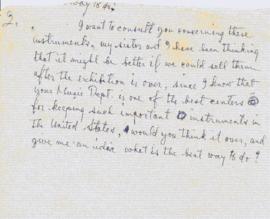 way to do?
2.
I want to consult you concerning these
instruments, my sister and I have been thinking
that it might be better if we could sell them
after the exhibition is over, since I know that
your Music Dept. is one of the best centers
for keeping such important instruments in
the United States, would you think it over, and
give me an idea what is the best way to do?